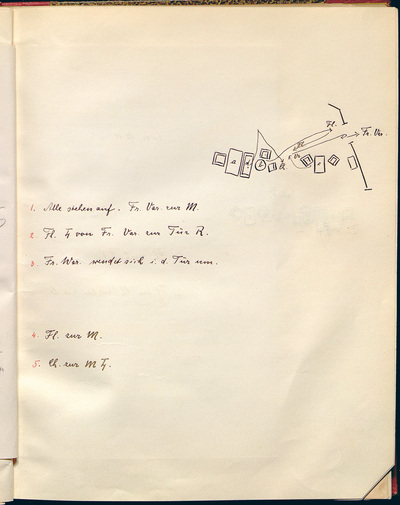 Fl.
Fr. Var.
a
d
b
c
1. Alle stehen auf. Fr. Var. zur M.
2. Fl. von Fr. Var. zur Tür R.
3. Fr. War. wendet sich i. d. Tür um.
4. Fl. zur M.
5. Ch. zur M